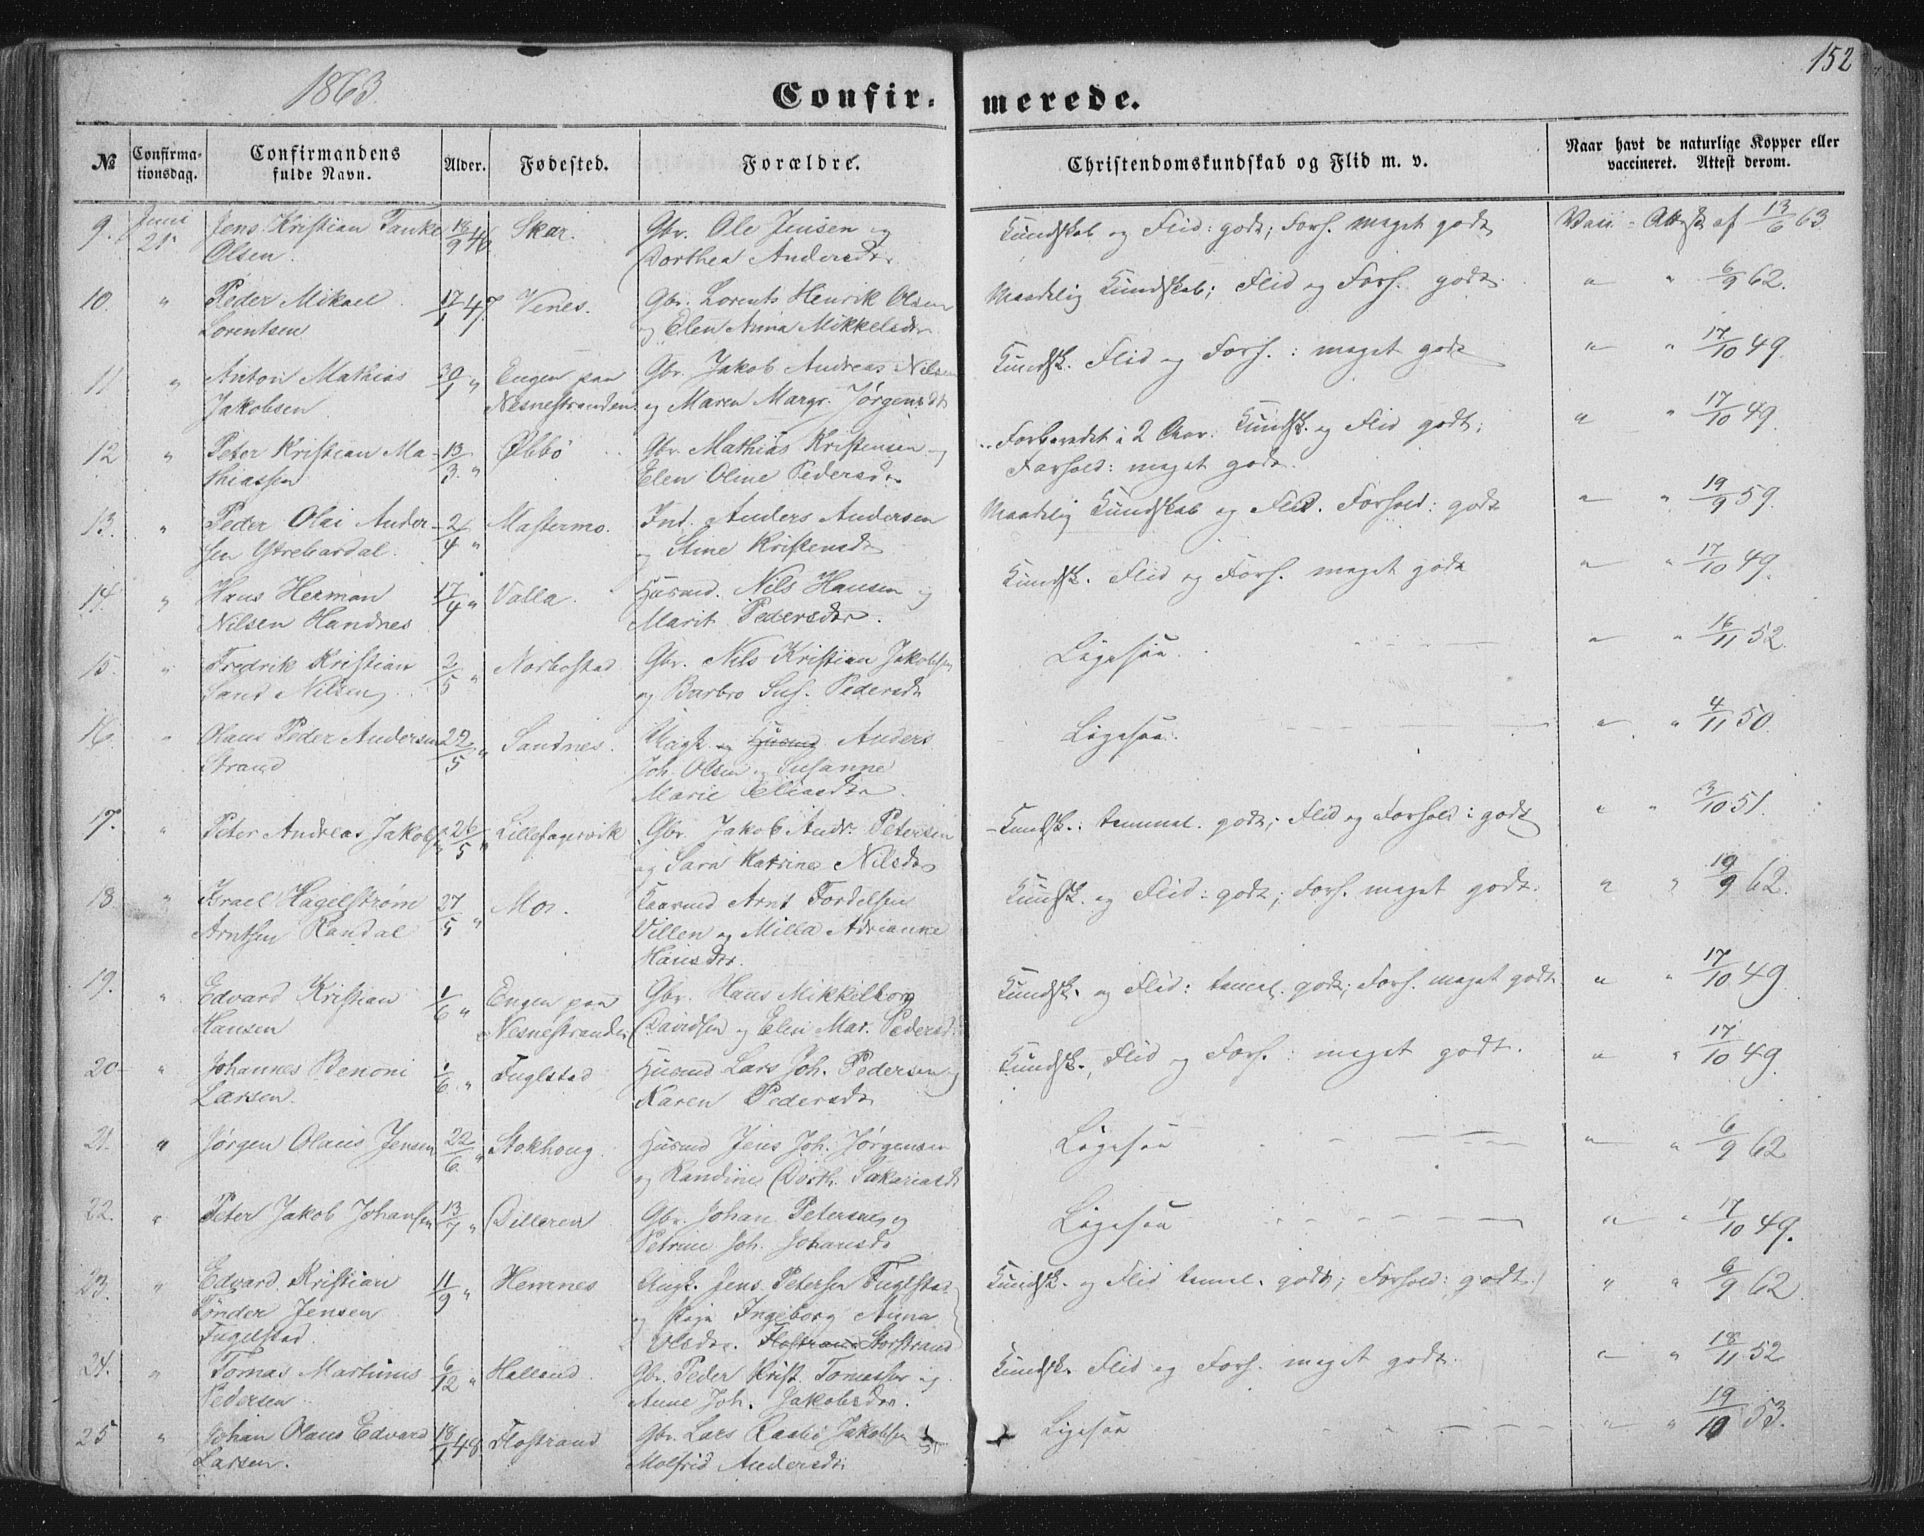 152
1863.
Confir- merede.
№ Confirmationsdag. Confirmandens fulde Navn. Alder. Fødested. Forældre. Christendomskundskab og Flid m. v. Naar havt de naturlige Kopper eller vaccineret. Attest derom.
9. Juni 21 Jens Kristian Tanke 18/9 46 Skar. Gbr. Ole Jensen og Kundskab og Flid: godt; Forh. meget godt Vacc. Attest af 13/6 63
Olsen. Dorthea Andersdr.
10. " Peder Mikael 17/1 47. Venes. Gbr. Lorents Henrik Olsen Maadelig Kundskab; Flid og Forh. godt. " " 6/9 62.
Lorentsen og Elen Anna Mikkelsdr.
11 " Anton Mathias 30/1 " Engen paa Gbr. Jakob Andreas Nilsen Kundsk. Flid og Forh.: meget godt " " 17/10 49.
Jakobsen. Nesnestranden. og Maren Margr. Jørgensdr
12 " Peter Kristian Ma- 13/3 " Øbbø Gbr. Mathias Kristensen og Forberedet i 2 Aar. Kundsk. og Flid godt; " " 17/10 49.
thiassen Elen Oline Pedersdr Forhold: meget godt.
13. " Peder Olai Ander- 2/4 " Mastermo. Ind. Anders Andersen Maadelig Kundskab og Flid. Forhold: godt " " 19/9 59.
sen Ytrebardal. og Stine Kristensdr
14. " Hans Herman 17/4 " Valla. Husmd. Nils Hansen og Kundsk. Flid og Forh. meget godt " " 17/10 49.
Nilsen Handnes Marit Pedersdr.
15. " Fredrik Kristian 2/5 " Norbostad Gbr. Nils Kristian Jakobsen Ligesaa. " " 16/11 52.
Sand Nilsen og Barbro Sus. Pedersdr
16. " Olaus Peder Andersen 22/5 " Sandnes. Husmd. Anders Ligesaa. " " 4/11 50.
Strand Joh. Olsen og Susanne
Marie Eliasdr.
17. " Peter Andreas Jakobsen 26/5 " Lillefagervik Gbr. Jakob Andr. Petersen Kundsk.: temmel. godt; Flid og Forhold: godt " " 3/10 51.
og Sara Katrine Nilsdr
18. " Israel Hagelstrøm 27/5 " Mo. Kaarmd Arnt Tordelsen Kundsk. og Flid: godt; Forh. meget godt. " " 19/9 62.
Arntsen Randal Villen og Milla Adrianne
Hansdr.
19. " Edvard Kristian 1/6 " Engen paa Gbr. Hans Mikkelborg Kundsk. og Flid: temmel. godt; Forh. meget godt " " 17/10 49
Hansen Nesnestranden Davidsen og Elen Mar. Pedersd.
20. " Johannes Benoni 1/6 " Fuglstad Husmd Lars Joh. Pedersen og Kundsk., Flid og Forh.: meget godt. " " 17/10 49.
Larsen. Karen Pedersdr
21. " Jørgen Olaus Jensen 22/6 " Stokhoug. Husmd Jens Joh. Jørgensen Ligesaa " " 6/9 62
og Randine Dorth. Sakariasdr
22. " Peter Jakob Johansen 13/7 " Dilleren Gbr. Johan Petersen og Ligesaa " " 17/10 49.
Petrine Joh. Johansdr
23. " Edvard Kristian 11/9 " Hemnes Ungk. Jens Petersen Fuglstad Kundsk. og Flid temmel. godt; Forhold: godt. " " 6/9 62.
Tønder Jensen og Pige Ingeborg Anna
Fugelstad. Olsdr. Flostrand Storstrand
24. " Tomas Martinus 6/12 " Halland. Gbr. Peder Krist. Tomassen og Kundsk. Flid og Forh. meget godt. " " 18/11 52
Pedersen Anne Joh. Jakobsdr.
25 " Johan Olaus Edvard 18/1 48. Flostrand Gbr. Lars Raabø Jakobsen Ligesaa " " 19/10 53.
Larsen. Molfrid Andersdr